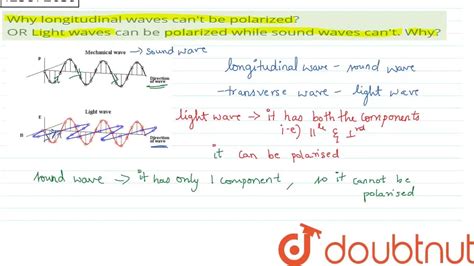 Why longitudinal waves can't be polarized?
OR Light waves can be polarized while sound waves can't. Why?
Mechanical wave
→ sound wave
E
Direction
of wave
longitudinal wave - sound wave
- transverse wave - light wave
Light wave
E
B
Direction
of wave
light wave → it has both the components
i-e) ||le & ⊥rd
it can be polarised
sound wave → it has only 1 component, so it cannot be
polarised
doubtnut